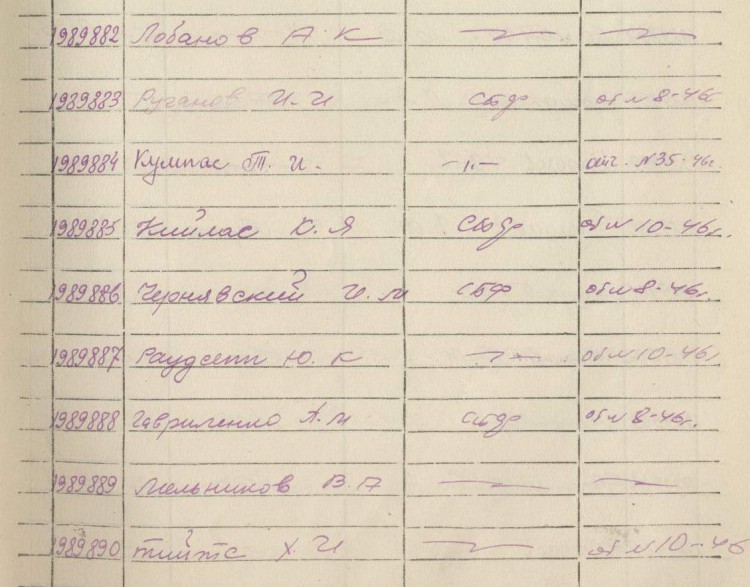 1989882 Лобанов А К
1989883 Руганов И. И СБФ от N 8-46г
1989884 Кумпас Т. И. -"- отг. N35-46г.
1989885 Кийлас Ю. Я СБФ от N 10-46г.
1989886 Чернявский И. М СБФ от N 8-46г.
1989887 Раудсепп Ю. К от N 10-46г
1989888 Гавриленко А. М СБФ от N 8-46г.
1989889 Мельников В. П
1989890 Тийтс Х. И от N 10-46